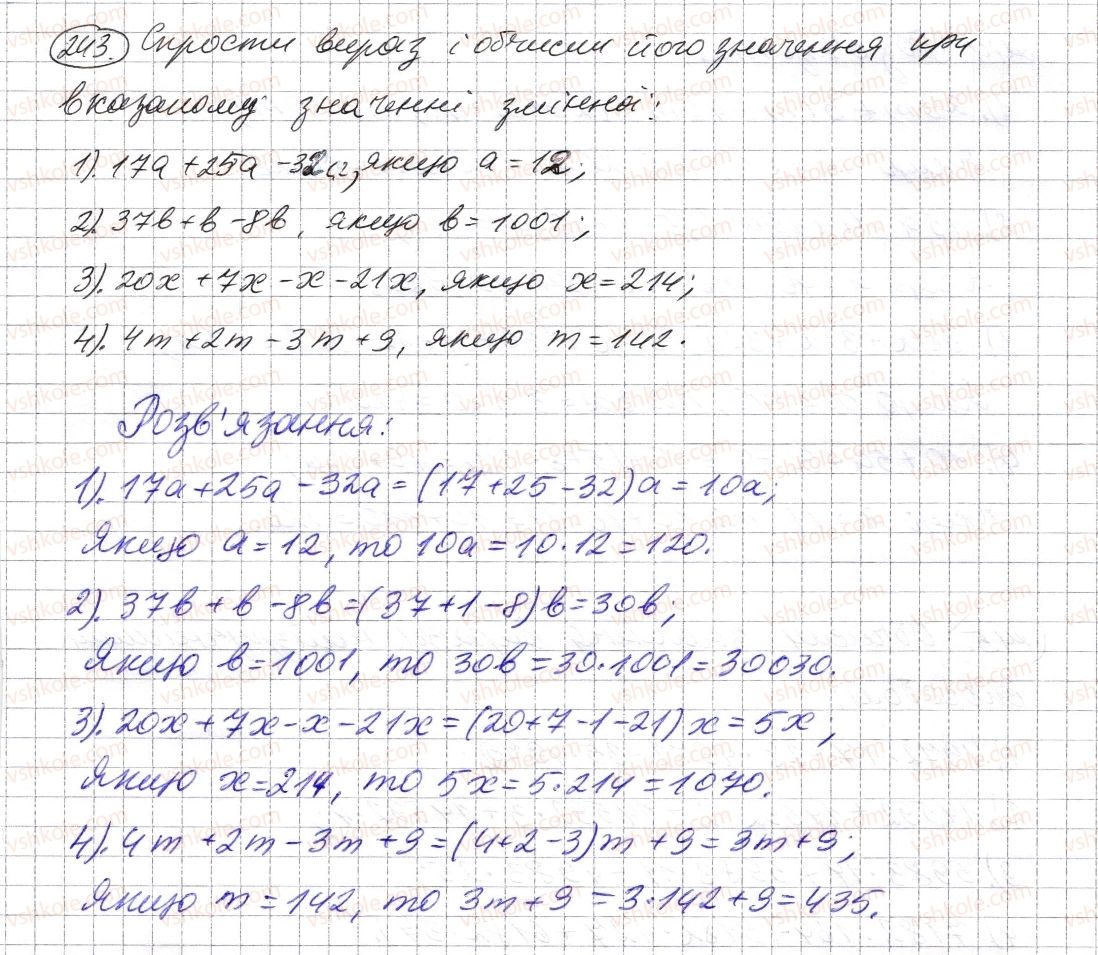 243. Спрости вираз і обчисли його значення при
вказаному значенні змінної:
1). 17a + 25a - 32a, якщо a = 12;
2). 37b + b - 8b, якщо b = 1001;
3). 20x + 7x - x - 21x, якщо x = 214;
4). 4m + 2m - 3m + 9, якщо m = 142.
Розв'язання:
1). 17a + 25a - 32a = (17 + 25 - 32)a = 10a;
Якщо a = 12, то 10a = 10·12 = 120.
2). 37b + b - 8b = (37 + 1 - 8)b = 30b;
Якщо b = 1001, то 30b = 30·1001 = 30030.
3). 20x + 7x - x - 21x = (20 + 7 - 1 - 21)x = 5x,
Якщо x = 214, то 5x = 5·214 = 1070.
4). 4m + 2m - 3m + 9 = (4 + 2 - 3)m + 9 = 3m + 9;
Якщо m = 142, то 3m + 9 = 3·142 + 9 = 435.
vshkole.com